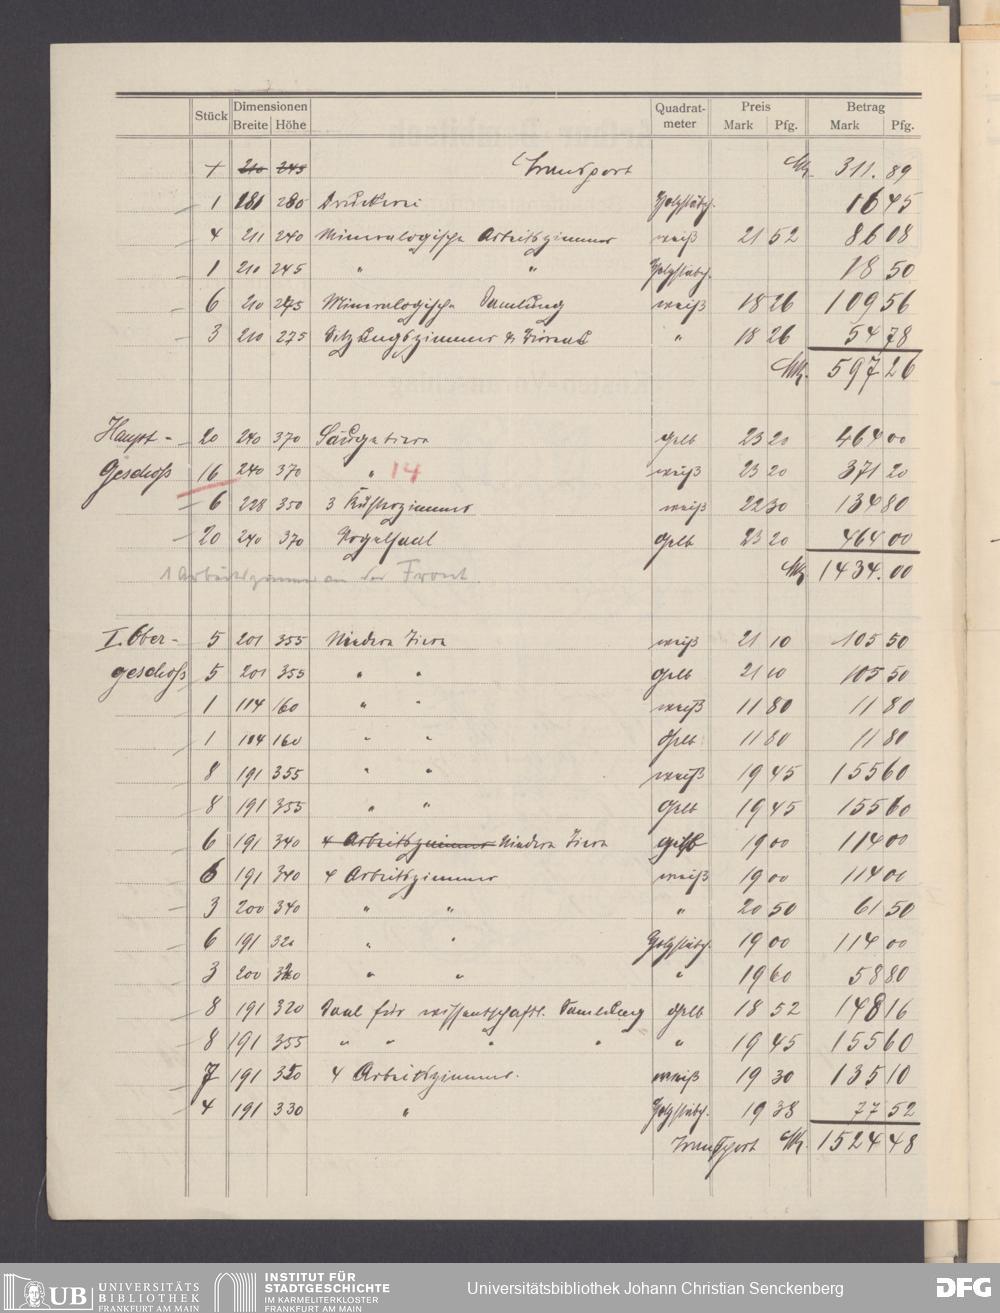 Stück Dimensionen Breite Höhe Quadrat-meter Preis Mark Pfg. Betrag Mark Pfg.
+ 210 245 Transport Mk. 311. 89
1 281 280 Druckerei Holzstäbch. 16 45
4 211 240 Mineralogische Arbeitszimmer weiß 21 52 86 08
1 210 245 " " Holzstäbch. 18 50
6 210 245 Mineralogische Samlung weiß 18 26 109 56
3 210 275 Sitzungszimmer & Büreau " 18 26 54 78
Mk. 597 26
Haupt- 20 240 370 Säugetiere gelb 23 20 464 00
Geschoß 16 240 370 " 14 weiß 23 20 371 20
6 228 350 3 weiß 22 30 134 80
20 240 370 Vogelsaal gelb 23 20 464 00
1 Arbeitszimmer an der Front Mk 1434. 00
I. Ober- 5 201 355 Niedere Tiere weiß 21 10 105 50
geschoß 5 201 355 " " gelb 21 10 105 50
1 114 160 " " weiß 11 80 11 80
1 104 160 " " Gelb 11 80 11 80
8 191 355 " " weiß 19 45 155 60
8 191 355 " " Gelb 19 45 155 60
6 191 340 4 Arbeitszimmer Niedere Tiere gelb 19 00 114 00
6 191 340 4 Arbeitszimmer weiß 19 00 114 00
3 200 340 " " " 20 50 61 50
6 191 320 " " Holzstäbch. 19 00 114 00
3 200 320 " " " 19 60 58 80
8 191 320 Saal für wissenschaftl. Samlung gelb 18 52 148 16
8 191 355 " " " " " 19 45 155 60
7 191 350 4 Arbeitszimmer. weiß 19 30 135 10
4 191 330 " Holzstäbch. 19 38 77 52
Transport Mk. 1524 48
UB UNIVERSITÄTS
BIBLIOTHEK
FRANKFURT AM MAIN
INSTITUT FÜR
STADTGESCHICHTE
IM KARMELITERKLOSTER
FRANKFURT AM MAIN
Universitätsbibliothek Johann Christian Senckenberg
DFG